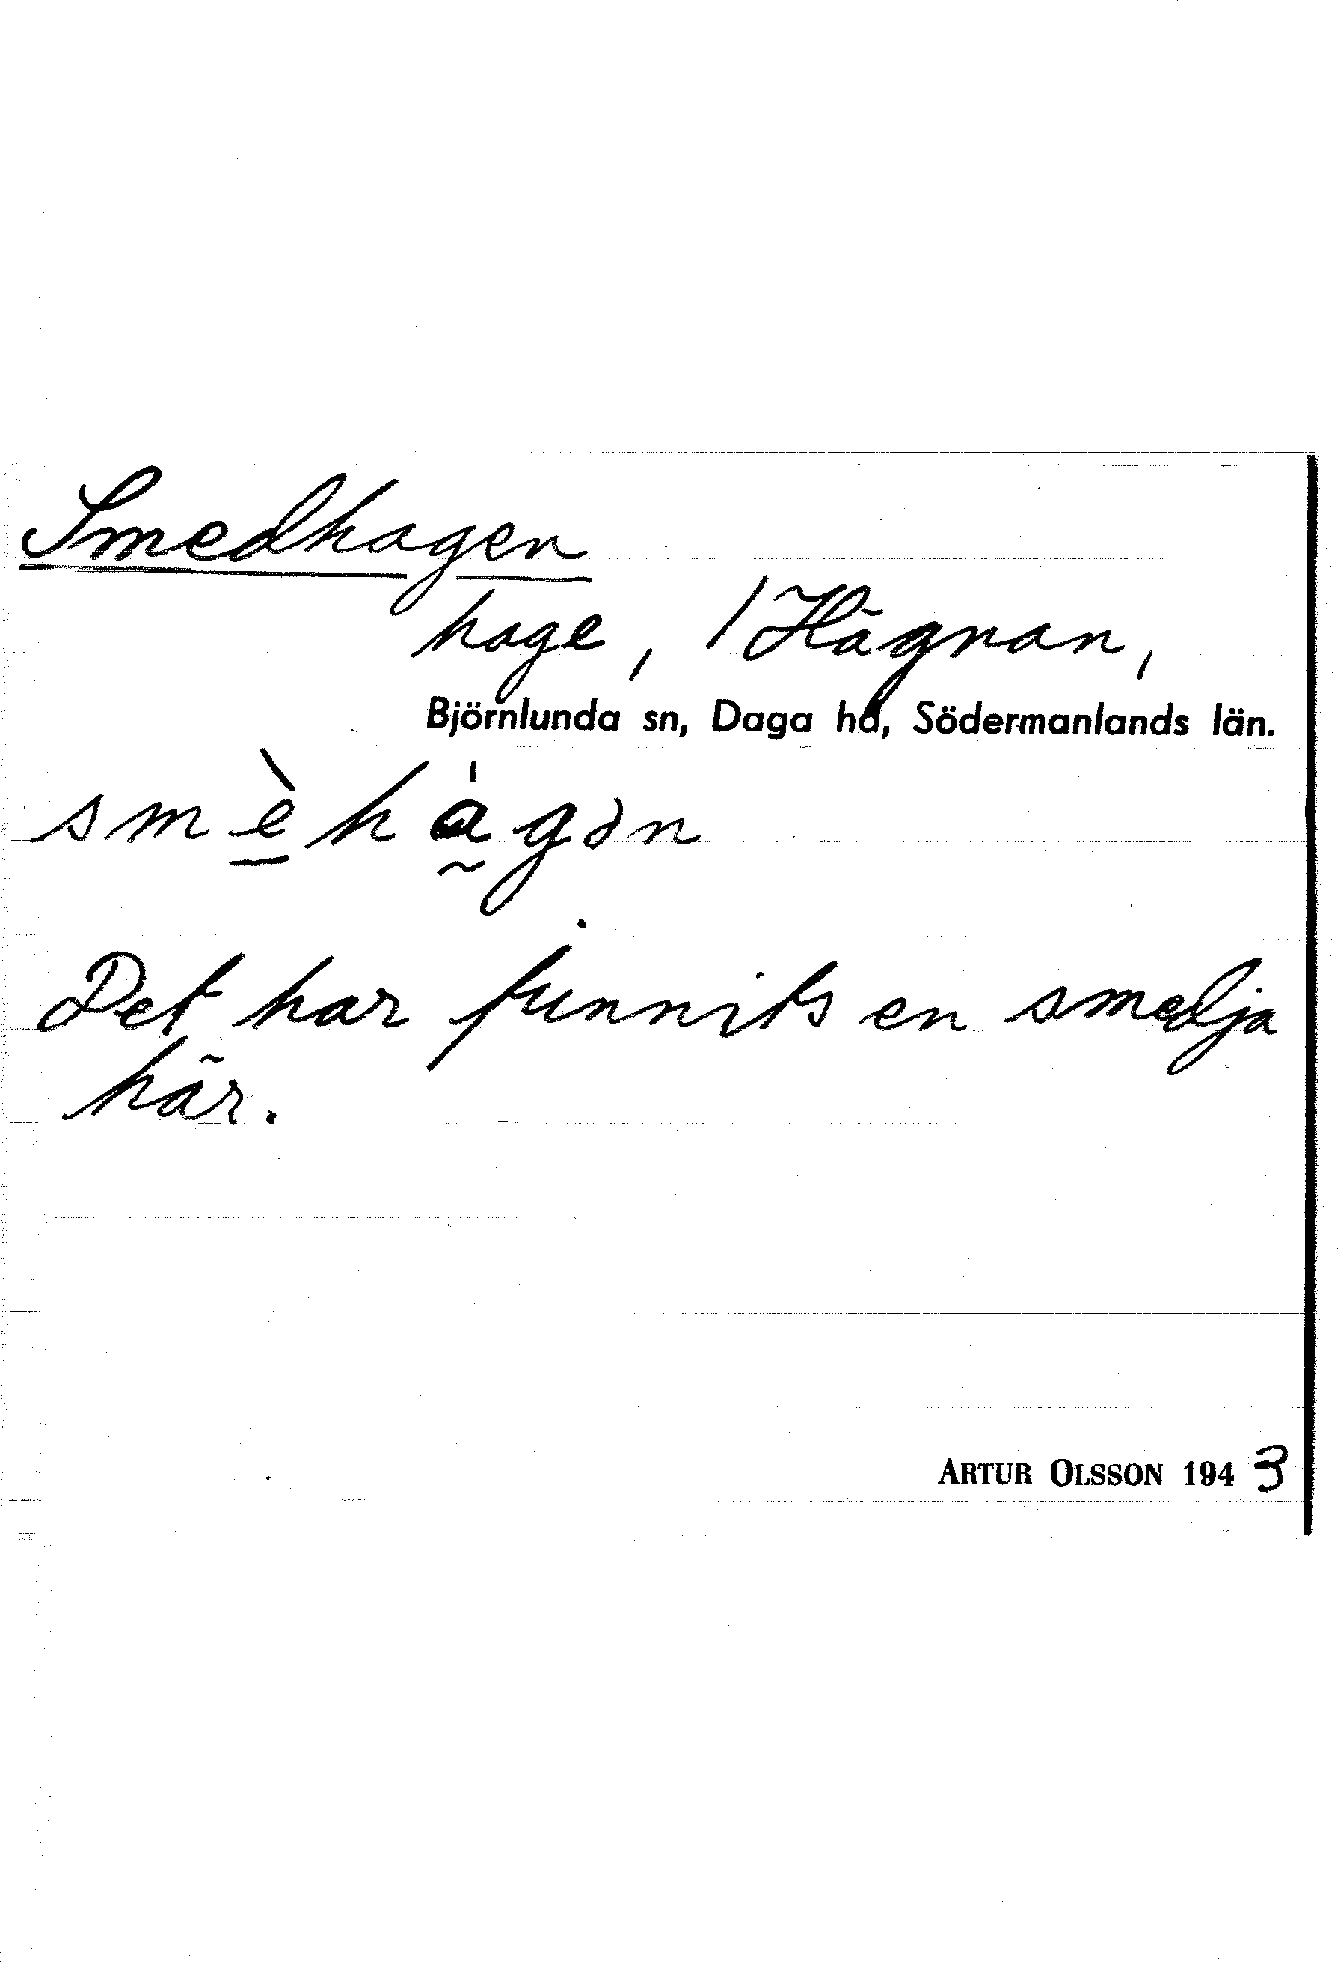 Smedhagen
hage, / Hägnan,
Björnlunda sn, Daga hd, Södermanlands län.
smè̲hà̰gən
Det har funnits en smedja
här.
ARTUR OLSSON 1943